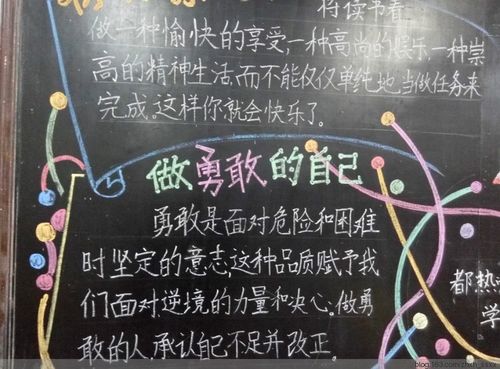 将读书看
做一种愉快的享受,一种高尚的娱乐,一种崇
高的精神生活,而不能仅仅单纯地当做任务来
完成。这样你就会快乐了。
做勇敢的自己
勇敢是面对危险和困难
时坚定的意志,这种品质赋予我
们面对逆境的力量和决心。做勇
敢的人,承认自己不足并改正。
都热
学